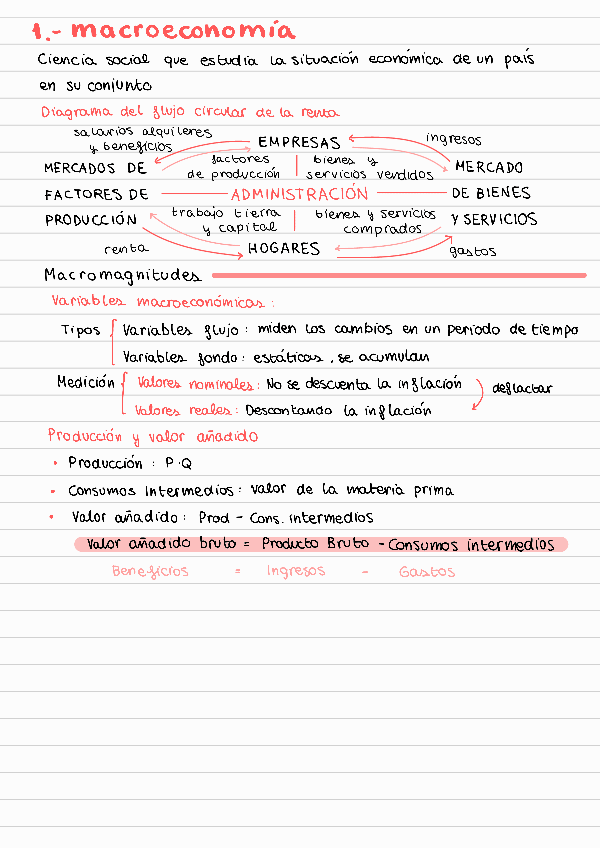 1.- macroeconomía
Ciencia social que estudia la situación económica de un país
en su conjunto
Diagrama del flujo circular de la renta
salarios alquileres
y beneficios
EMPRESAS
ingresos
MERCADOS DE
factores
de producción
bienes y
servicios vendidos
MERCADO
FACTORES DE
ADMINISTRACIÓN
DE BIENES
PRODUCCIÓN
trabajo tierra
y capital
bienes y servicios
comprados
Y SERVICIOS
renta
HOGARES
gastos
Macromagnitudes
Variables macroeconómicas:
Tipos
Variables flujo: miden los cambios en un periodo de tiempo
Variables fondo: estáticas, se acumulan
Medición
Valores nominales: No se descuenta la inflación
deflactar
Valores reales: Descontando la inflación
Producción y valor añadido
• Producción: P·Q
• Consumos Intermedios: valor de la materia prima
• Valor añadido: Prod - Cons. intermedios
Valor añadido bruto = Producto Bruto - Consumos intermedios
Beneficios = Ingresos - Gastos